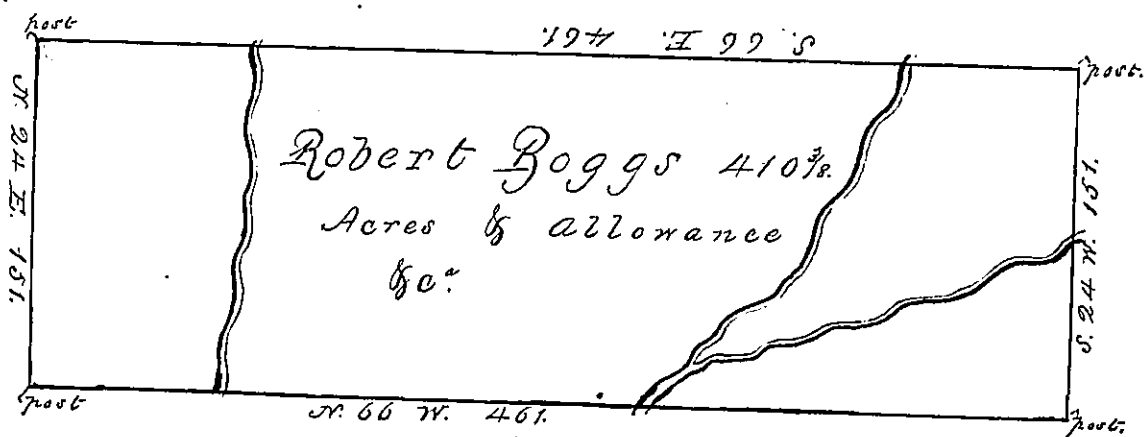 post
S. 66 E. 461.
post.
N. 24 E. 151.
Robert Boggs 410 3/8.
Acres & allowance
&cª.
S. 24 W. 151.
post
N. 66 W. 461.
post.